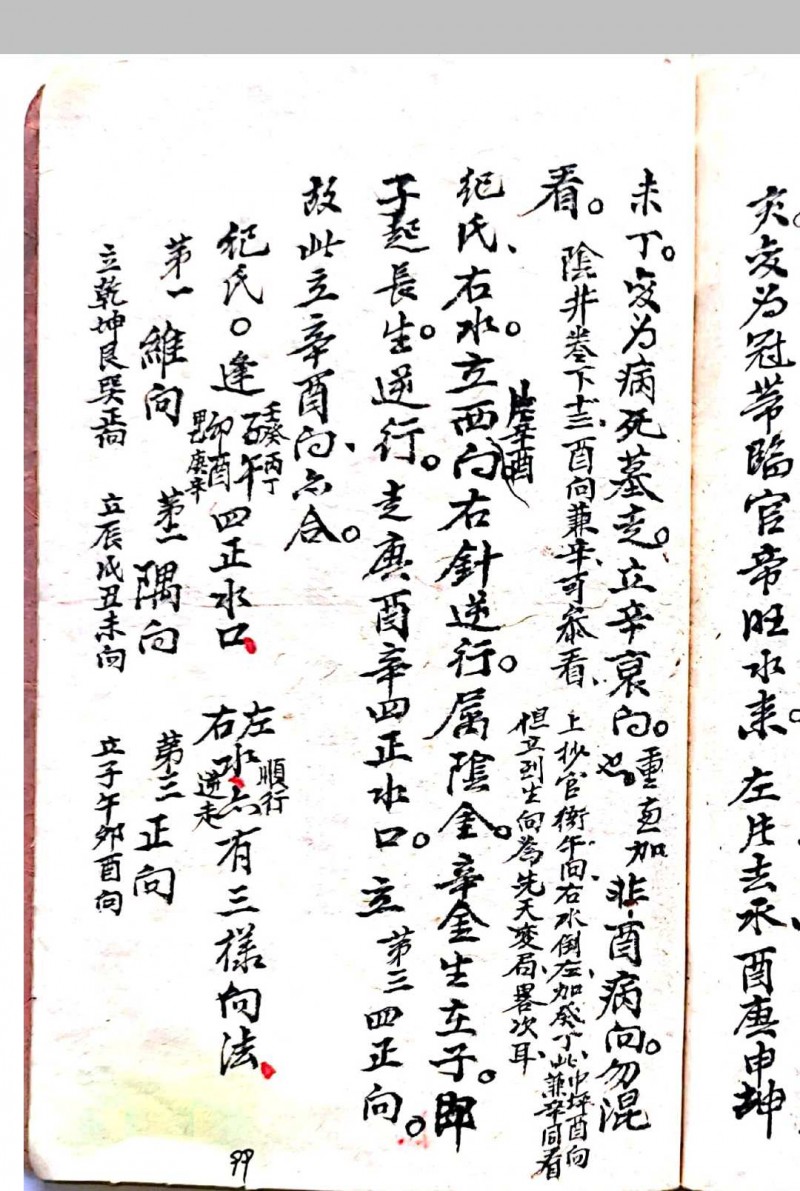 亥变为冠带臨官帝旺水来。左片去水酉庚申坤
未丁。变为病死墓走。立辛衰向。也。重直加非酉病向。勿混
看。陰井卷下十三、酉向兼辛可叅看、
上抄官衙午向、右水倒左、加癸丁、此中坪酉向兼辛同看
但立到生向為先天变局、畧次耳、
兼辛酉
紀氏、右水。立酉向右針逆行。属陰金。辛金生在子。即
子起長生。逆行。走庚酉辛四正水口。立第三四正向。
故此立辛酉向、亦合。
紀氏。逢子午卯酉四正水口
壬癸丙丁
甲乙庚辛
左右水亦有三樣向法
順行
逆走
第一維向 第二隅向 第三正向
立乾坤艮巽正向 立辰戌丑未向 立子午卯酉向
99